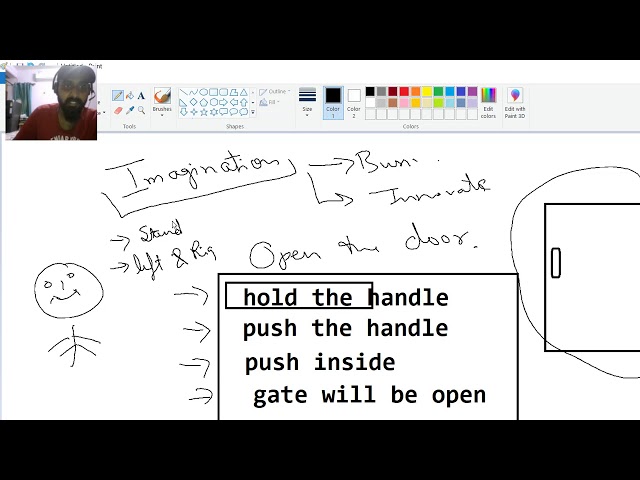 Paint
Tools
Brushes
Shapes
Outline
Fill
Size
Color 1
Color 2
Colors
Edit colors
Edit with Paint 3D
Imagination
Innovate
Stand
left &
Open the door.
hold the handle
push the handle
push inside
gate will be open